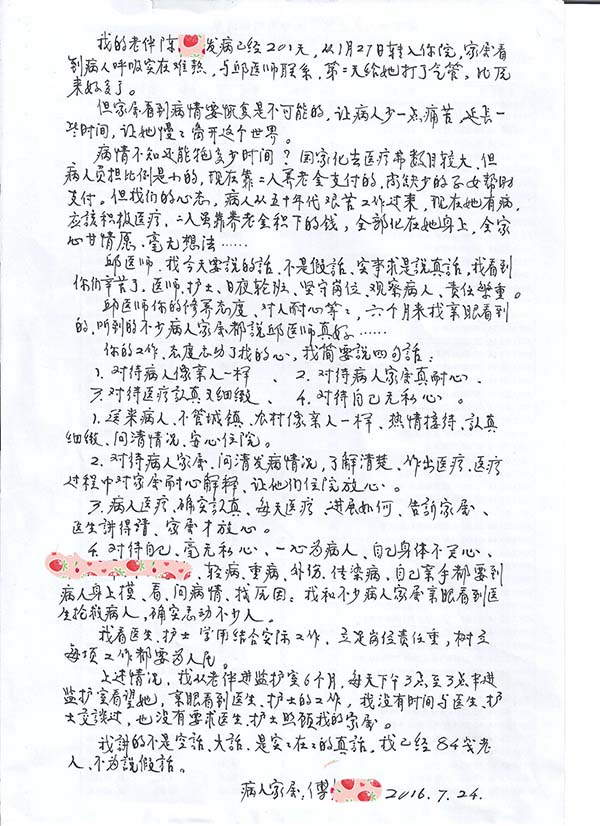 我的老伴陈 发病已经201天，从1月27日转入你院，家属看
到病人呼吸实在难熬，与邱医师联系，第二天给她打了气管，比原
来好多了。
但家属看到病情要恢复是不可能的，让病人少一点痛苦，延长一
些时间，让她慢慢离开这个世界。
病情不知还能拖多少时间？国家化去医疗费数目较大，但
病人负担比例是小的，现在靠二人养老金支付的，离缺少的子女帮助
支付。但我们的心态，病人从五十年代艰苦工作过来，现在她有病，
应该积极医疗，二人虽靠养老金积下的钱，全部化在她身上，全家
心甘情愿、毫无想法……
邱医师，我今天要说的話，不是假話，实事求是说真話，我看到
你们辛苦了，医师、护士、日夜轮班、坚守岗位、观察病人、责任繁重。
邱医师你的修养态度，对人耐心等等，六个月来我亲眼看到
的，听到的不少病人家属都説邱医师真好……
你的工作、态度感动了我的心，我简要説四句話：
1. 对待病人像亲人一样、 2. 对待病人家属真耐心、
3. 对待医疗認真又细緻、 4. 对待自己无私心。
1. 送来病人、不管城镇、农村像亲人一样、热情接待、認真
细緻、问清情况、安心住院。
2. 对待病人家属、问清发病情况，了解清楚、作出医疗、医疗
过程中对家属耐心解释、让他们住院放心。
3. 病人医疗、确实認真、每天医疗、进展如何、告訴家属、
医生讲得清、家属才放心。
4. 对待自己、毫无私心、一心为病人、自己身体不灵心、
轻病、重病、外伤、传染病、自己亲手都要到
病人身上摸、看、问病情、找原因：我和不少病人家属亲眼看到医
生抢救病人，确实感动不少人。
我看医生、护士学用结合实际工作、立足岗位责任重，树立
每项工作都要为人民。
上述情况，我从老伴进监护室6个月，每天下午3点至3点半进
监护室看望她，亲眼看到医生、护士的工作，我没有时间与医生、护
士交谈过，也没有要求医生、护士照顾我的家属。
我讲的不是空話、大話、是实实在在的真話。我已经84岁老
人、不为説假話。
病人家属：傅 2016.7.24.